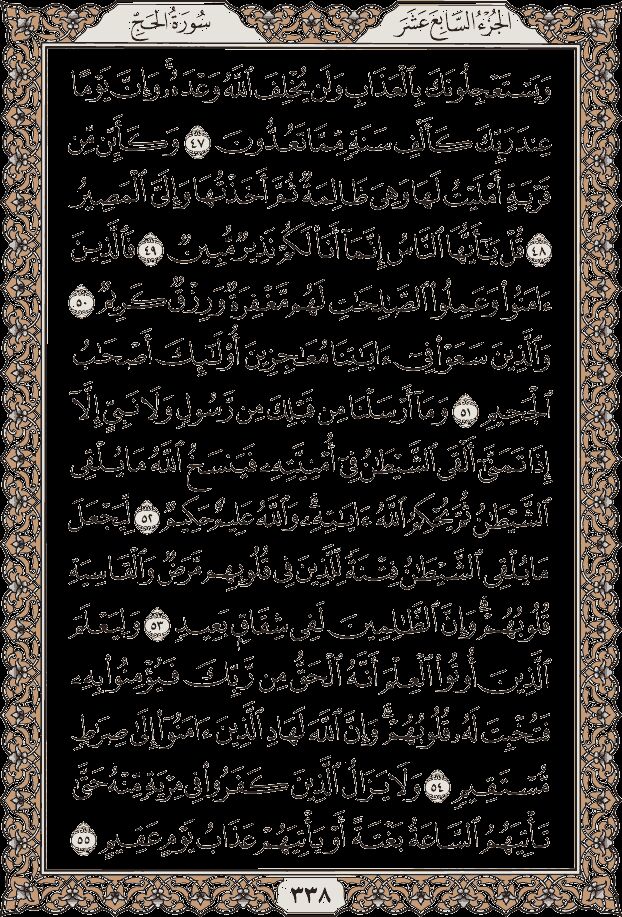 الجزء السابع عشر
سورة الحج
وَيَسْتَعْجِلُونَكَ بِٱلْعَذَابِ وَلَن يُخْلِفَ ٱللَّهُ وَعْدَهُۥۚ وَإِنَّ يَوْمًا
عِندَ رَبِّكَ كَأَلْفِ سَنَةٍ مِّمَّا تَعُدُّونَ ٤٧ وَكَأَيِّن مِّن
قَرْيَةٍ أَمْلَيْتُ لَهَا وَهِىَ ظَالِمَةٌ ثُمَّ أَخَذْتُهَا وَإِلَىَّ ٱلْمَصِيرُ
٤٨ قُلْ يَٰٓأَيُّهَا ٱلنَّاسُ إِنَّمَآ أَنَا۠ لَكُمْ نَذِيرٌ مُّبِينٌ ٤٩ فَٱلَّذِينَ
ءَامَنُوا۟ وَعَمِلُوا۟ ٱلصَّٰلِحَٰتِ لَهُم مَّغْفِرَةٌ وَرِزْقٌ كَرِيمٌ ٥٠
وَٱلَّذِينَ سَعَوْا۟ فِىٓ ءَايَٰتِنَا مُعَٰجِزِينَ أُو۟لَٰٓئِكَ أَصْحَٰبُ
ٱلْجَحِيمِ ٥١ وَمَآ أَرْسَلْنَا مِن قَبْلِكَ مِن رَّسُولٍ وَلَا نَبِىٍّ إِلَّآ
إِذَا تَمَنَّىٰٓ أَلْقَى ٱلشَّيْطَٰنُ فِىٓ أُمْنِيَّتِهِۦ فَيَنسَخُ ٱللَّهُ مَا يُلْقِى
ٱلشَّيْطَٰنُ ثُمَّ يُحْكِمُ ٱللَّهُ ءَايَٰتِهِۦۗ وَٱللَّهُ عَلِيمٌ حَكِيمٌ ٥٢ لِّيَجْعَلَ
مَا يُلْقِى ٱلشَّيْطَٰنُ فِتْنَةً لِّلَّذِينَ فِى قُلُوبِهِم مَّرَضٌ وَٱلْقَاسِيَةِ
قُلُوبُهُمْۗ وَإِنَّ ٱلظَّٰلِمِينَ لَفِى شِقَاقٍۭ بَعِيدٍ ٥٣ وَلِيَعْلَمَ
ٱلَّذِينَ أُوتُوا۟ ٱلْعِلْمَ أَنَّهُ ٱلْحَقُّ مِن رَّبِّكَ فَيُؤْمِنُوا۟ بِهِۦ
فَتُخْبِتَ لَهُۥ قُلُوبُهُمْۗ وَإِنَّ ٱللَّهَ لَهَادِ ٱلَّذِينَ ءَامَنُوٓا۟ إِلَىٰ صِرَٰطٍ
مُّسْتَقِيمٍ ٥٤ وَلَا يَزَالُ ٱلَّذِينَ كَفَرُوا۟ فِى مِرْيَةٍ مِّنْهُ حَتَّىٰ
تَأْتِيَهُمُ ٱلسَّاعَةُ بَغْتَةً أَوْ يَأْتِيَهُمْ عَذَابُ يَوْمٍ عَقِيمٍ ٥٥
٣٣٨